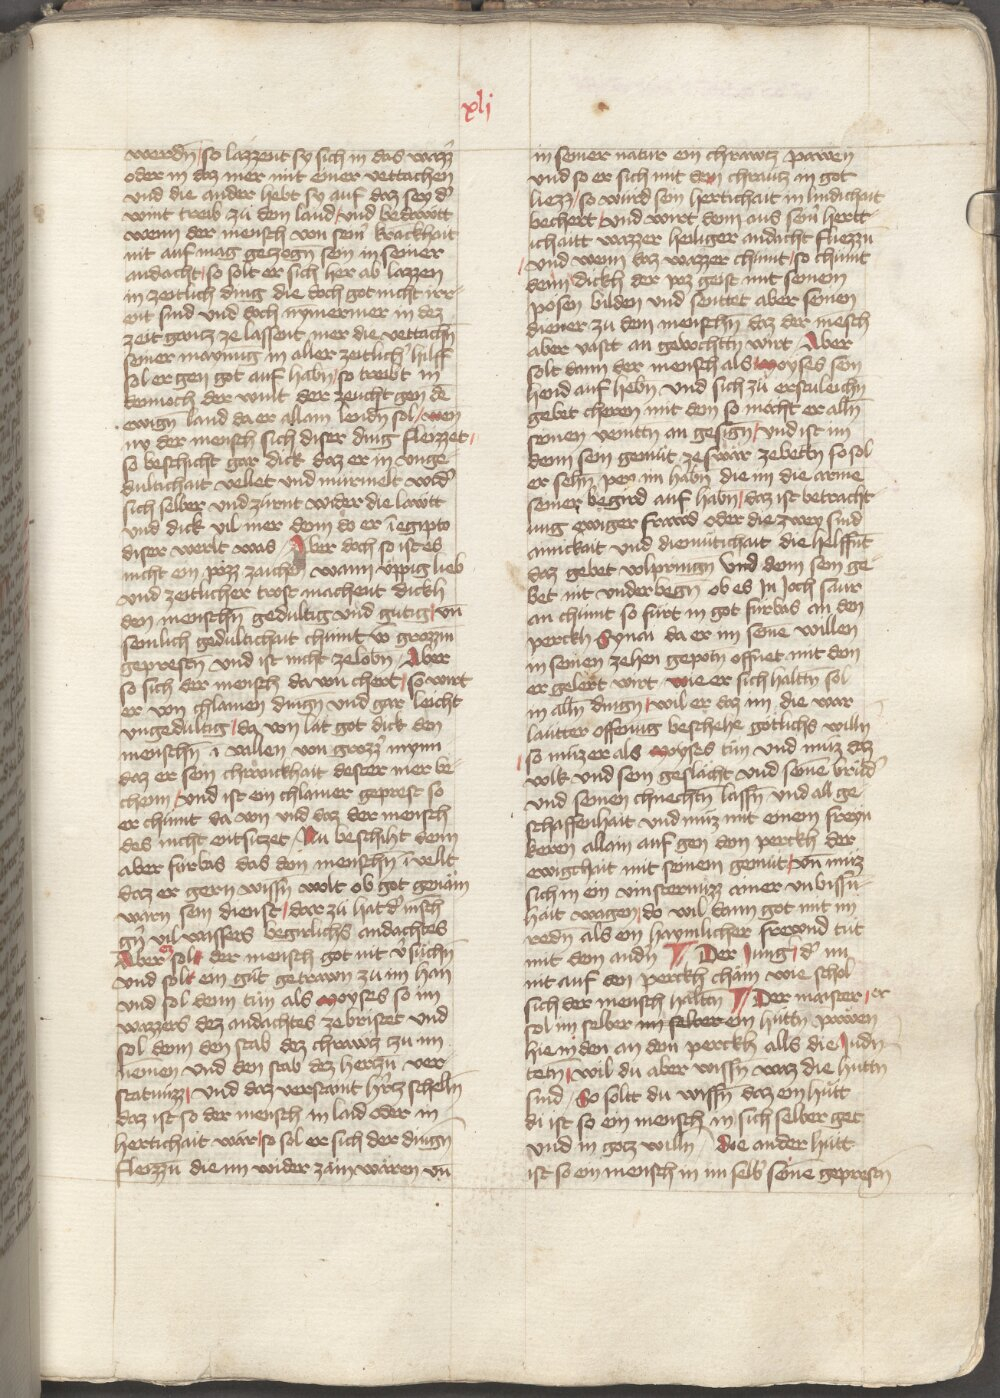 xlj
werdn̄ / so lazzent sy sich in das wazz̄
oder in daz mer mit einer vettachen
vnd die ander hebt sy auf daz sey d̄
wint treib zu dem land / vnd bedewtt
wenn der mensch von sein̄ kranckhait
nit auf mag gezogn̄ sein in seiner
andacht / so solt er sich her ab lazzen
in zeitlich ding die doch got nicht irr-
ent sind vnd doch nymermer in dez
zeit gantz ze lassent mer die vettachn̄
seiner maynug in aller zeitlich̄ hilff
sol er gen got auf habn̄ / so treibt in
dennoch der wint der zeucht gen dē
ewign̄ land da er allain lendn̄ sol / wen
nv der mensch sich diser ding fleizzet /
so beschicht gar dick daz er in vnge-
dultichait vellet vnd murmelt wid̄
sich selber vnd zürnt wider die lawtt
vnd dick vil mer denn do er ī egipto
diser werlt was / Aber doch so ist es
nicht ein pözz zaichen wann vppig lieb
vnd zeitlicher trost machent dickh
den menschn̄ gedultig vnd gutig / vn̄
semlich gedultichait chumt vō grozzm̄
geprestn̄ vnd ist nicht zelobn̄ / Aber
so sich der mensch da von chert / so wirt
er von chlainen dingn̄ vnd gar leicht
vngedultig / da von lat got dick den
menschn̄ ī vallen von grozz̄ mynn
daz er sein chranckhait dester mer be-
chenn / vnd ist ein chlainer geprest so
er chumt da von vnd daz der mensch
des nicht entsitzet / Nu beschiht denn
aber fürbas das den menschn̄ ī velt
daz er gern wissn̄ wolt ob got genäm
warn sein dienst / dar zü hat d̄ mēsch
gn̄ vil wassers begirlichs andachtes
Aber ez sol der mensch got nit v̄suchn̄
vnd sol ein güt getrawn zu im han
vnd sol denn tün als Moyses so im
wazzers dez andachtes zebristet vnd
sol denn den stab dez chrawtz tzu im
nemen vnd den stab dez hertzn̄ ver-
staindizz / vnd daz verstaint h̄tz scheln̄
daz ist so der mensch in laid oder in
hertichait wär / so sol er sich der dingn̄
fleizzn̄ die im wider zäm wären vn̄
in seiner natur ein chrawtz pawen
vnd so er sich mit dem chrautz in got
liezz / so wurd sein hertichait in lindichait
bechert / vnd wirt denn aus sein̄ hertt-
ichaitt wazzer heiliger andacht fliezzn̄
/ vnd wenn daz wazzer chumt / so chumt
denn dickh der pöz geist mit seinem
posen bilden vnd senttet aber seinen
diener zu dem menschn̄ daz der mēsch
aber vast an gewochttn̄ wirt / Aber
solt dann der mensch als Moyses sein
hend auf hebn̄ vnd sich zü ersuleichn̄
gebet cheren mit dem so möcht er alln̄
seinen veinttn̄ an gesign̄ / vnd ist im
denn sein gemüt ze swär zebettn̄ so sol
er sehn̄ pey im habn̄ die im die arme
seiner begird auf habn̄ / daz ist betracht-
ung ewiger frawd oder die zwey sind
ainickait vnd diemütichait die helffnt
daz gebet volpringn̄ vnd denn sein ge-
bet nit vnderbegn̄ ob es Jn joch saur
an chumt so fürt in got fürbas an den
perckh Synai da er im seinē willen
in seinen zehen gepotn̄ offnet mit dem
er gelert wirt / wie er sich haltn̄ sol
in alln̄ dingn̄ / wil er daz im die war
lautter offenūg beschehe götlichs willn̄
/ so müz er als Moyses tün vnd müz daz
volk vnd sein geslächt vnd seinē brüd̄
vnd seinen chnechtn̄ lassn̄ vnd all ge-
schaffenhait vnd müz mit einem freyn̄
keren allain auf gen dem perckh der
ewigchait mit seinem gemüt / vn̄ müz
sich in ein vinsternuzz ainer vnbissn̄-
hait wagen / do wil dann got mit im
redn̄ als ein haymlicher frewnd tüt
mit dem andn̄ ¶ Der Jung / d̄ im
nit auf den perckh cham wie schol
sich der mensch haltn̄ ¶ Der maister / er
sol im selber im selber ein hüttn̄ pawen
hie niden an dem perckh alls die Judn̄
tetn̄ / wil du aber wissn̄ waz die hüttn̄
sind / So soltt du wissn̄ daz ein hütt
di ist so ein mensch in sich selber get
vnd in gotz willn̄ / Die ander hütt
ist so ein mensch in im selb̄ seinē geprestn̄